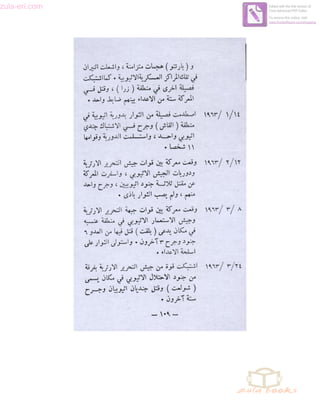 zula-eri.com
Edited with the trial version of
Foxit Advanced PDF Editor
To remove this notice, visit:
www.foxitsoftware.com/shopping
و ( بارنتو ) هجمات متزامنة ، واشعلت النيران
في تلك المراكز العسكرية الاثيوبية ٠ كما اشتبكت
فصيلة اخرى في منطقة ( زرا ) ، وقتل فـــي
المعركة ستة من الاعداء بينهم ضابط واحد ٠
١٩٦٣/ ١/١٤ اصطدمت فصيلة من الثوار بدورية اثيوبية في
منطقة ( القاش ) وجرح فـــي الاشتباك جندي
اثيوبي واحـــد ، واستسلمت الدورية وقوامها
١١ شخصا ٠
١٩٦٣/ ٢/١٢ وقعت معركة بين قوات جيش التحرير الارترية
ودوريات الجيش الاثيوبي ، واسفرت المعركة
عن مقتل ثلاثـــة جنود اثيوبيين ، وجرح واحد
منهم ، ولم يصب الثوار باذى ٠
١٩٦٣/ ٣/ ٨ وقعت معركة بين قوات جبهة التحرير الارترية
وجيش الاستعمار الاثيوبي في منطقة عنسبه
في مكان يدعى ( بلقت ) قتل فيها من العدو ٦
جنود وجرح ٣ آخرون ٠ واستولى الثوار على
اسلحة الاعداء ٠
١٩٦٣/ ٣/٢٤ اشتبكت قوة من جيش التحرير الارترية بفرقة
من جنود الاحتلال الاثيوبي في مكان يسمى
( شولعت ) وقتل جنديان اثيوبيان وجـــرح
ستة آخرون ٠
— ١٠٩ —